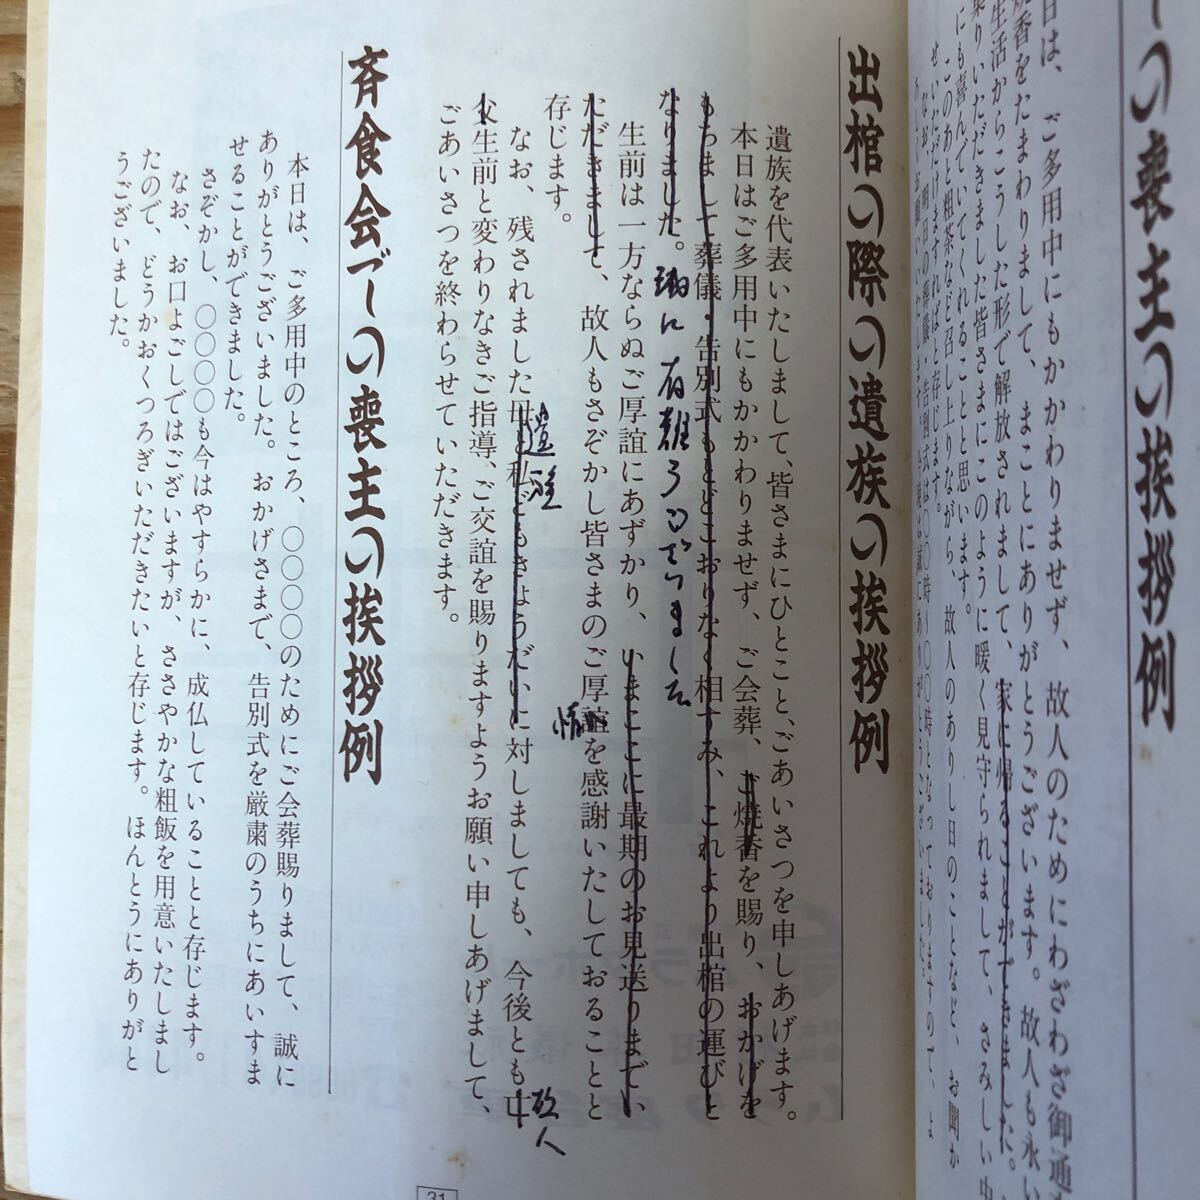 ーの喪主の挨拶例
日は、ご多用中にもかかわりませず、故人のためにわざわざ御通
焼香をたまわりまして、まことにありがとうございます。故人も永い
生活からこうした形で解放されまして、家に帰ることができました。
乗りいただきました皆さまにこのように暖く見守られまして、さみしい中
にも喜んでいてくれることと思います。
このあと粗茶など召し上りながら、故人のありし日のことなど、お聞か
せいただけますればと存じます。
なお、明日の葬儀・告別式は〇〇時〜〇〇時となっておりますので、よ
出棺の際の遺族の挨拶例
遺族を代表いたしまして、皆さまにひとこと、ごあいさつを申しあげます。
本日はご多用中にもかかわりませず、ご会葬、ご焼香を賜り、おかげを
もちまして葬儀・告別式もとどこおりなく相すみ、これより出棺の運びと
なりました。 誠に有難うございました
生前は一方ならぬご厚誼にあずかり、いまここに最期のお見送りまでい
ただきまして、故人もさぞかし皆さまのご厚誼を感謝いたしておることと
存じます。
なお、残されました母も私どもきょうだいに対しましても、今後とも
遺族
故人
父生前と変わりなきご指導、ご交誼を賜りますようお願い申しあげまして、
ごあいさつを終わらせていただきます。
斉食会での喪主の挨拶例
本日は、ご多用中のところ、〇〇〇〇のためにご会葬賜りまして、誠に
ありがとうございました。おかげさまで、告別式を厳粛のうちにあいすま
せることができました。
さぞかし、〇〇〇〇も今はやすらかに、成仏していることと存じます。
なお、お口よごしではございますが、ささやかな粗飯を用意いたしまし
たので、どうかおくつろぎいただきたいと存じます。ほんとうにありがと
うございました。
31